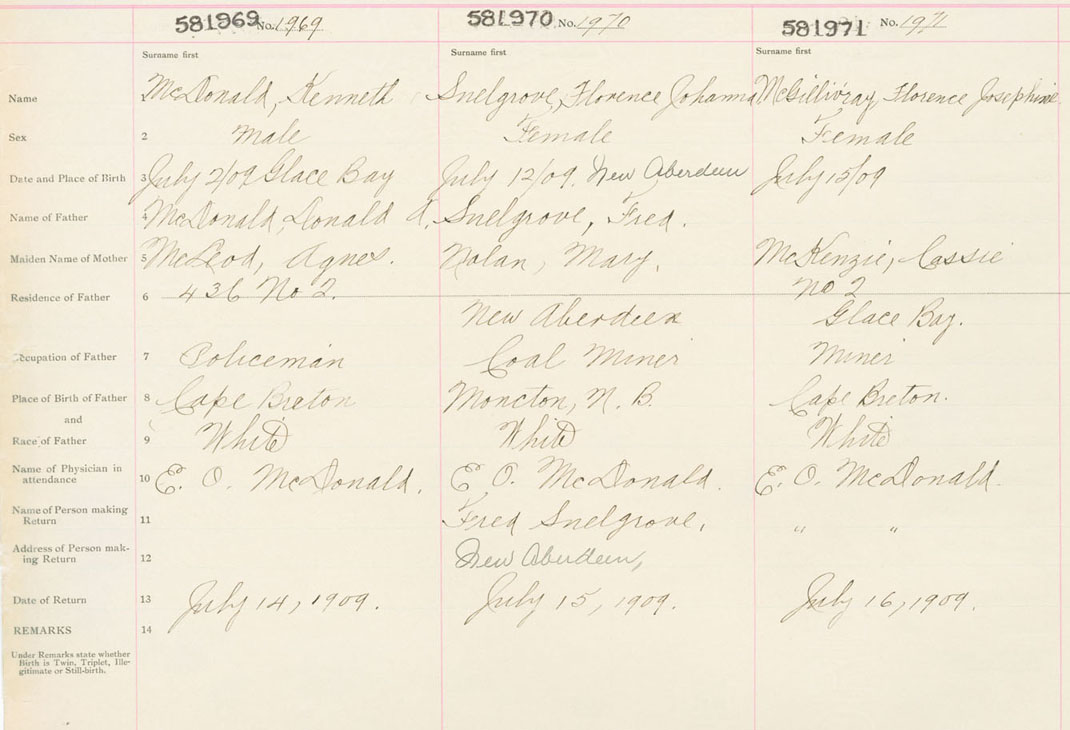 581969 No. 1969 581970 No. 1970 581971 No. 1971
Surname first Surname first Surname first
Name 1 McDonald, Kenneth Snelgrove, Florence Johanna McGillivray, Florence Josephine
Sex 2 Male Female Female
Date and Place of Birth 3 July 2/09 Glace Bay July 12/09. New Aberdeen July 15/09
Name of Father 4 McDonald, Donald A. Snelgrove, Fred.
Maiden Name of Mother 5 McLeod, Agnes. Nolan, Mary. McKenzie, Cassie
Residence of Father 6 436 No 2. New Aberdeen No 2
Glace Bay.
Occupation of Father 7 Policeman Coal Miner Miner
Place of Birth of Father 8 Cape Breton Moncton, N. B. Cape Breton.
and
Race of Father 9 White White White
Name of Physician in
attendance 10 E. O. McDonald. E O. McDonald. E. O. McDonald.
Name of Person making
Return 11 Fred Snelgrove, " "
Address of Person mak-
ing Return 12 New Aberdeen,
Date of Return 13 July 14, 1909. July 15, 1909. July 16, 1909.
REMARKS 14
Under Remarks state whether
Birth is Twin, Triplet, Ille-
gitimate or Still-birth.